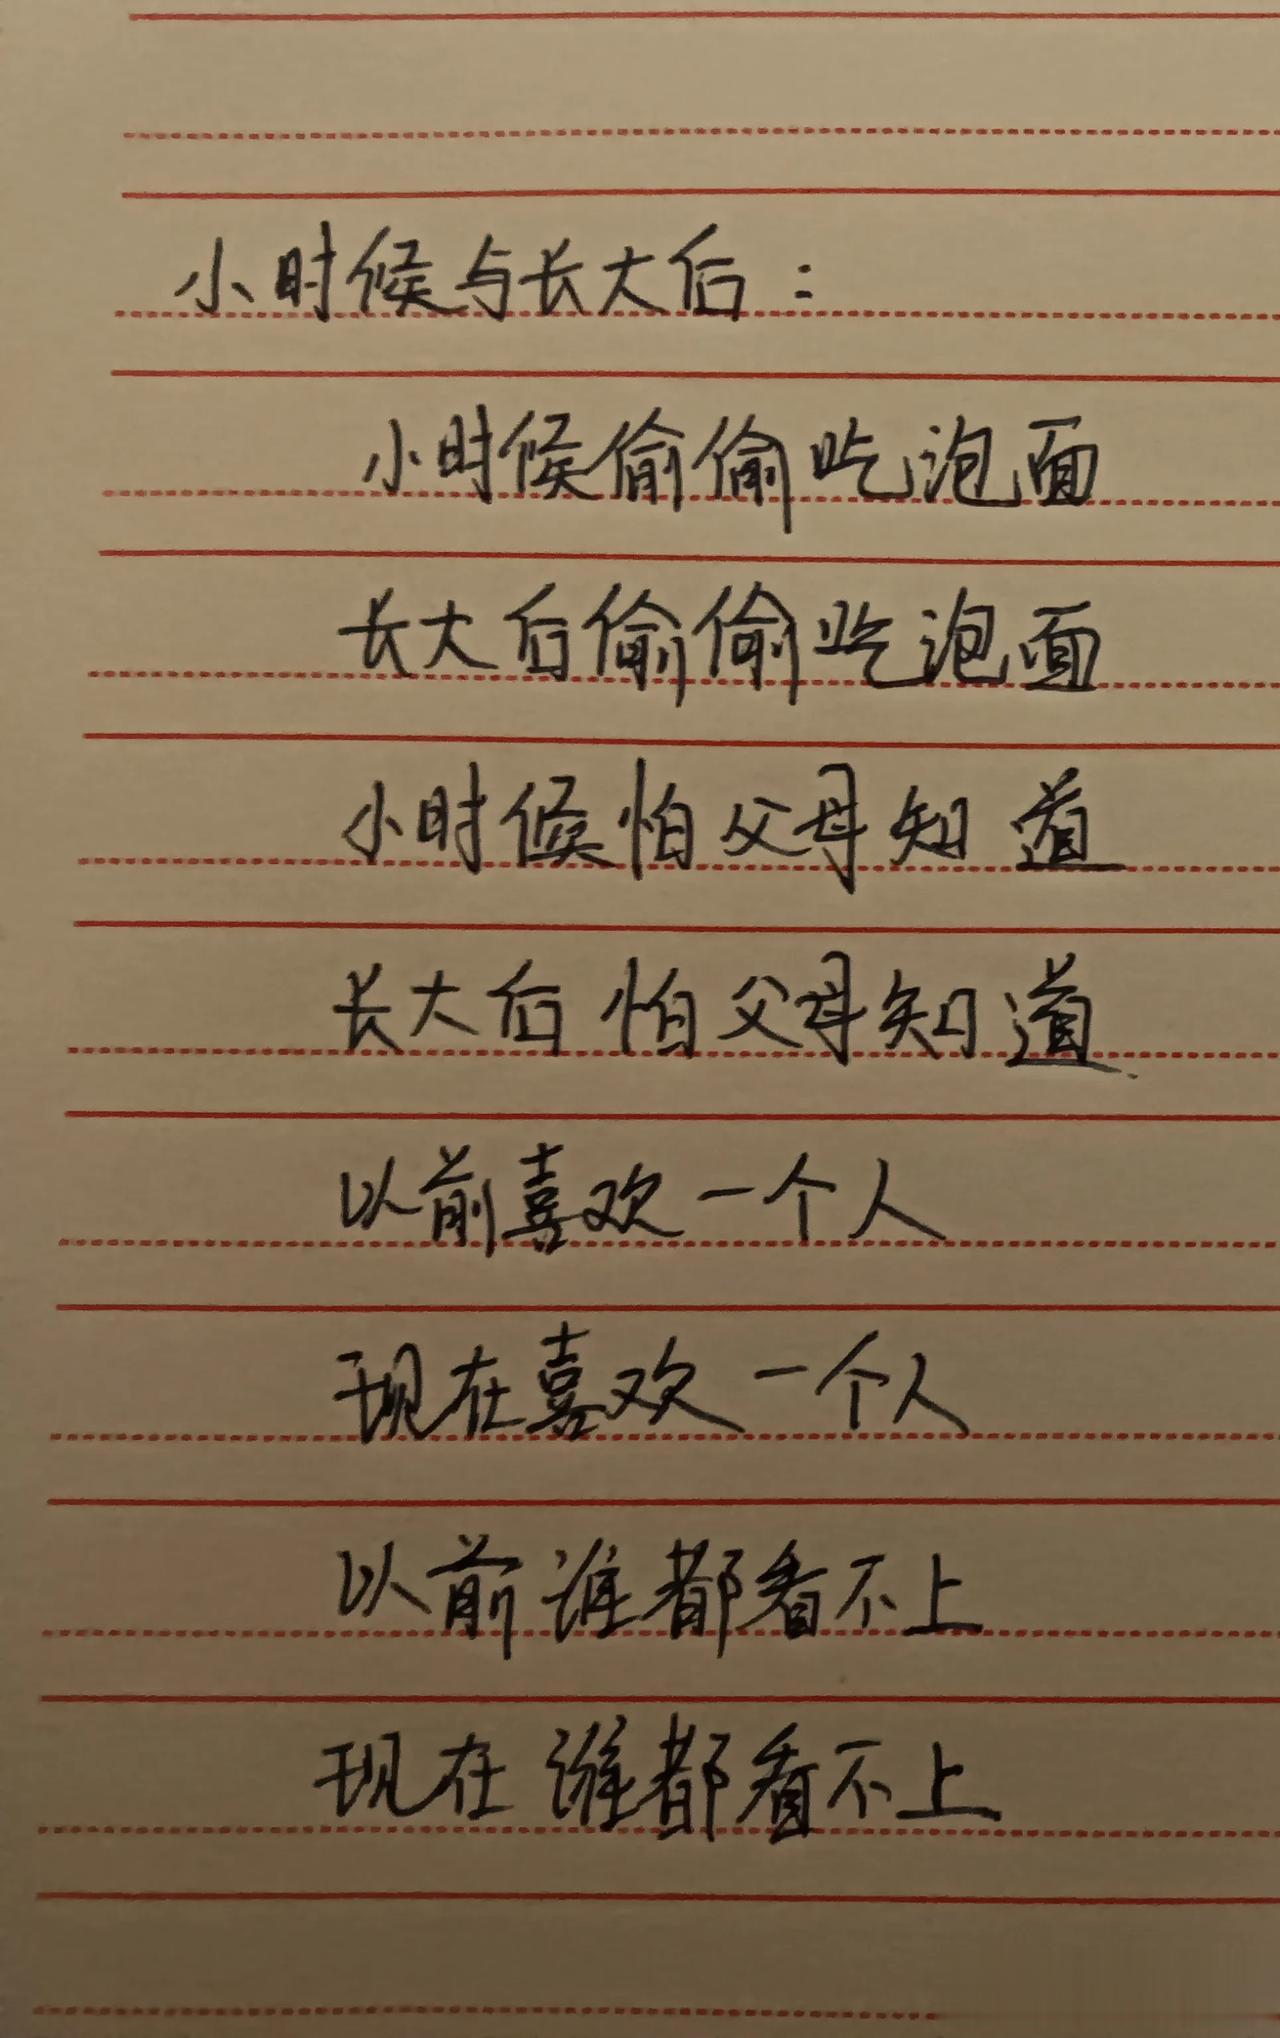 小时候与长大后：
小时候偷偷吃泡面
长大后偷偷吃泡面
小时候怕父母知道
长大后怕父母知道
以前喜欢一个人
现在喜欢一个人
以前谁都看不上
现在谁都看不上